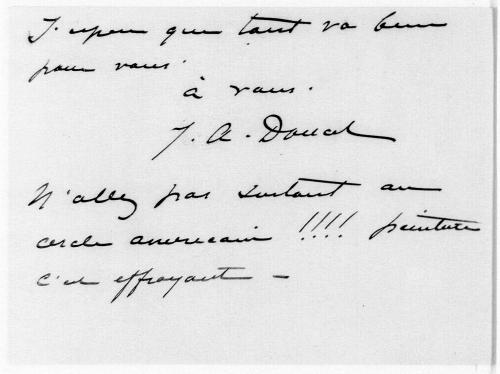 J'espere que tout va bien
pour vous.
à vous.
J. A. Doucet
N'allez pas surtout au
cercle americain !!!! peinture
c'est effroyant –